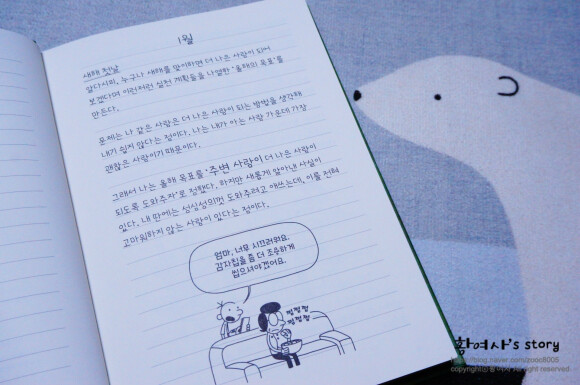 1월
새해 첫날
알다시피, 누구나 새해를 맞이하면 더 나은 사람이 되어
보겠다며 이런저런 실천 계획들을 나열한 '올해의 목표'를
만든다.
문제는 나 같은 사람은 더 나은 사람이 되는 방법을 생각해
내기 쉽지 않다는 점이다. 나는 내가 아는 사람 가운데 가장
괜찮은 사람이기 때문이다.
그래서 나는 올해 목표를 '주변 사람이 더 나은 사람이
되도록 도와주자'로 정했다. 하지만 새롭게 알아낸 사실이
있다. 내 딴에는 성심성의껏 도와주려고 애쓰는데, 이를 전혀
고마워하지 않는 사람이 있다는 점이다.
엄마, 너무 시끄러워요.
감자칩을 좀 더 조용하게
씹으셔야겠어요.
쩝쩝쩝
쩝쩝쩝
황여사's story